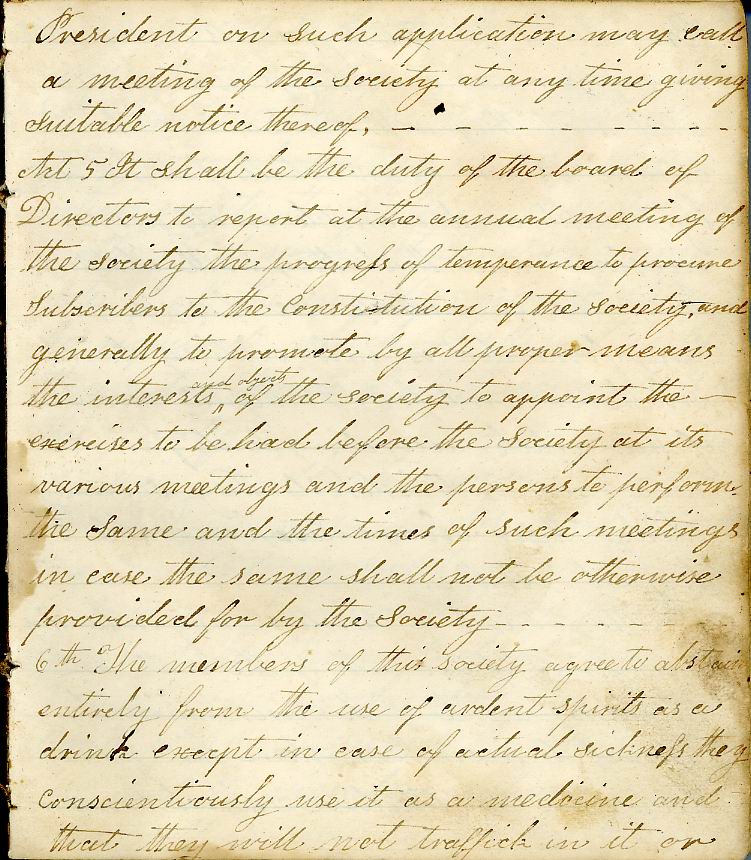 President on such application may call
a meeting of the Society at any time giving
suitable notice thereof. — - - - - - - -
Art 5 It shall be the duty of the board of
Directors to report at the annual meeting of
the Society the progress of temperance to procure
Subscribers to the Constitution of the Society, and
generally to promote by all proper means
the interests and objects of the society to appoint the —
exercises to be had before the Society at its
various meetings and the persons to perform
the Same and the times of such meetings
in case the same shall not be otherwise
provided for by the Society - - - - - -
6th The members of this society agree to abstain
entirely from the use of ardent spirits as a
drink except in case of actual sickness they
conscientiously use it as a medicine and
that they will not traffick in it or